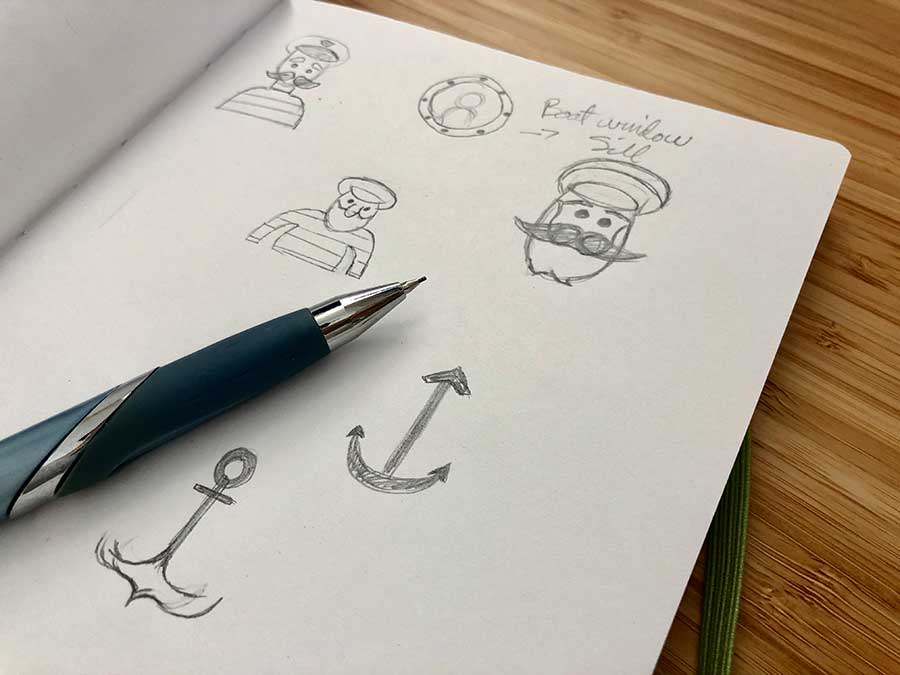 Boat window
Sill